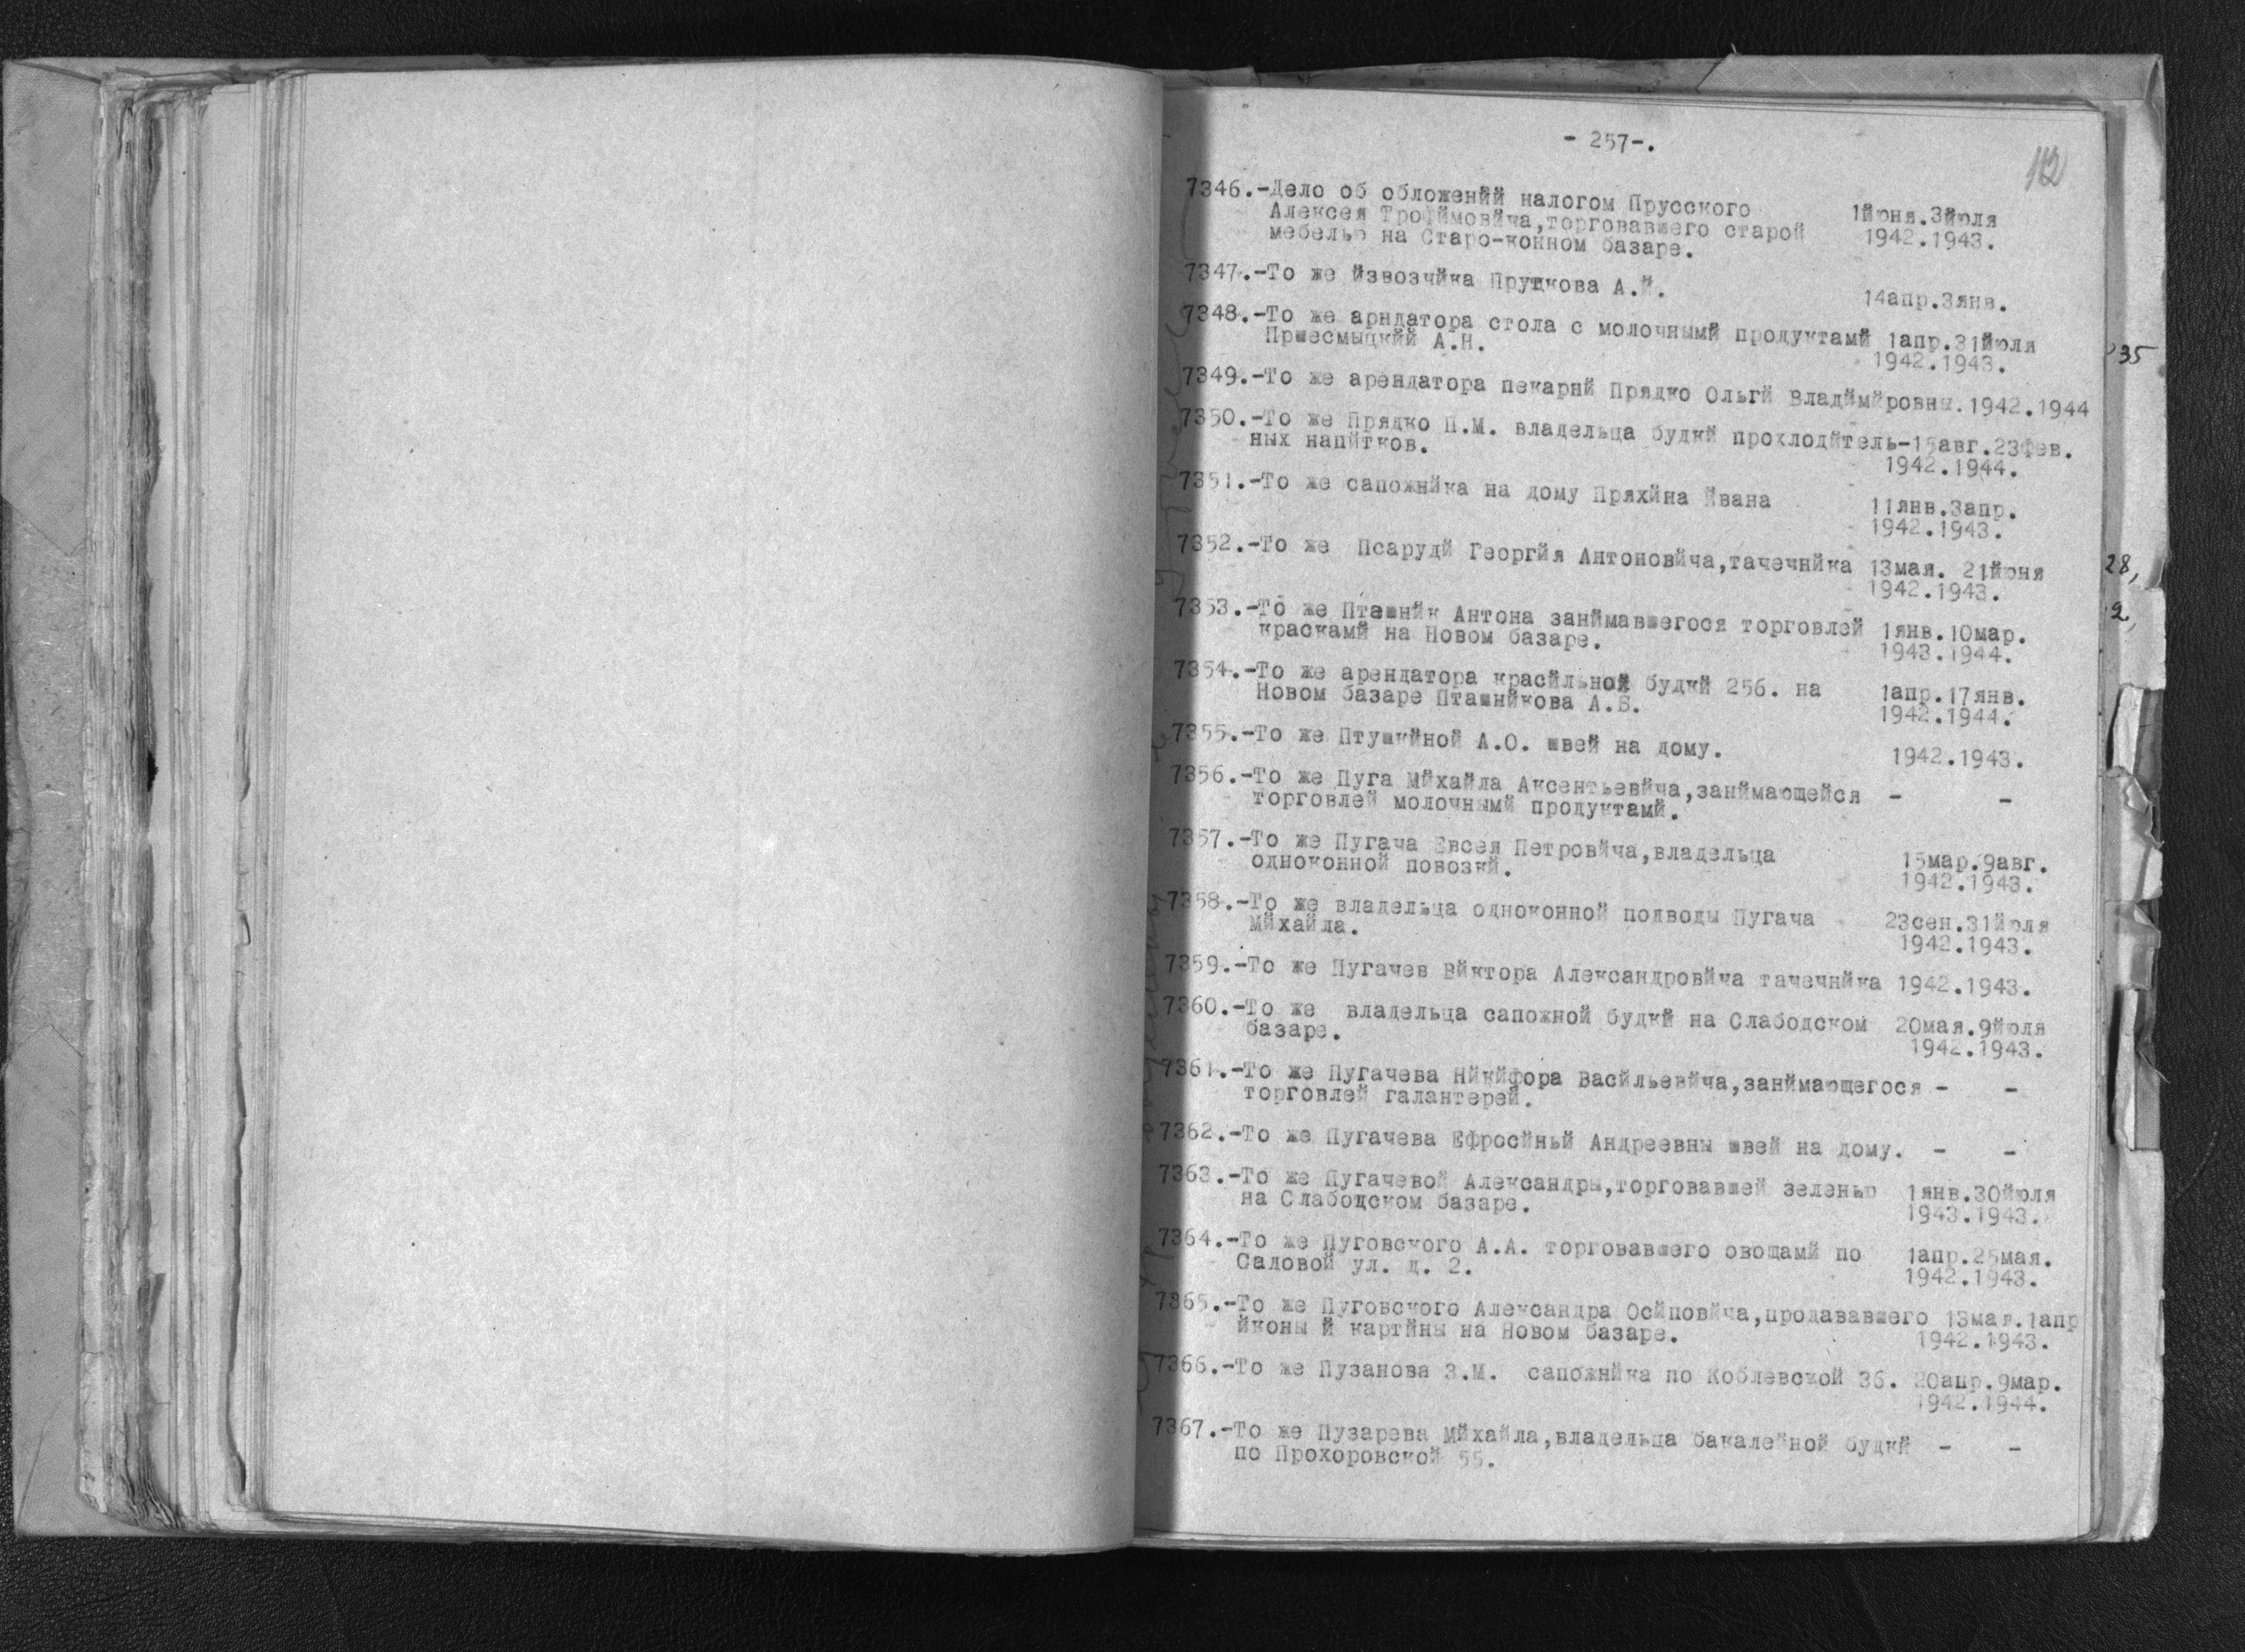 - 257-.
112
7346.-Дело об обложенйй налогом Прусского 1йюня.3йюля
Алексея Трофймовйча,торговавшего старой 1942.1943.
мебелью на Старо-конном базаре.
7347.-То же йзвозчйка Пруцкова А.Й. 14апр.3янв.
7348.-То же арндатора стола с молочнымй продуктамй 1апр.31йюля
Пршесмыцкйй А.Н. 1942.1943.
35
7349.-То же арендатора пекарнй Прядко Ольгй Владймйровны.1942.1944
7350.-То же Прядко П.М. владельца будкй прохлодйтель-15авг.23фев.
ных напйтков. 1942.1944.
7351.-То же сапожнйка на дому Пряхйна Йвана 11янв.3апр.
1942.1943.
7352.-То же Псарудй Георгйя Антоновйча,тачечнйка 13мая. 21йюня
28,
1942.1943.
7353.-То же Пташнйк Антона занймавшегося торговлей 1янв.10мар.
2,
краскамй на Новом базаре. 1943.1944.
7354.-То же арендатора красйльной будкй 256. на 1апр.17янв.
Новом базаре Пташнйкова А.Б. 1942.1944.
7355.-То же Птушкйной А.О. швей на дому. 1942.1943.
7356.-То же Пуга Мйхайла Аксентьевйча,занймающейся - -
торговлей молочнымй продуктамй.
7357.-То же Пугача Евсея Петровйча,владельца 15мар.9авг.
одноконной повозкй. 1942.1943.
7358.-То же владельца одноконной подводы Пугача 23сен.31йюля
Мйхайла. 1942.1943.
7359.-То же Пугачев Вйктора Александровйча тачечнйка 1942.1943.
7360.-То же владельца сапожной будкй на Слабодском 20мая.9йюля
базаре. 1942.1943.
7361.-То же Пугачева Нйкйфора Васйльевйча,занймающегося - -
торговлей галантерей.
7362.-То же Пугачева Ефросйньй Андреевны швей на дому. - -
7363.-То же Пугачевой Александры,торговавшей зеленью 1янв.30йюля
на Слабоцском базаре. 1943.1943.
7364.-То же Пуговского А.А. торговавшего овощамй по 1апр.25мая.
Садовой ул. д. 2. 1942.1943.
7365.-То же Пуговского Александра Осйповйча,продававшего 13мая.1апр
йконы й картйны на Новом базаре. 1942.1943.
7366.-То же Пузанова З.М. сапожнйка по Коблевской 36. 20апр.9мар.
1942.1944.
7367.-То же Пузарева Мйхайла,владельца бакалейной будкй - -
по Прохоровской 55.